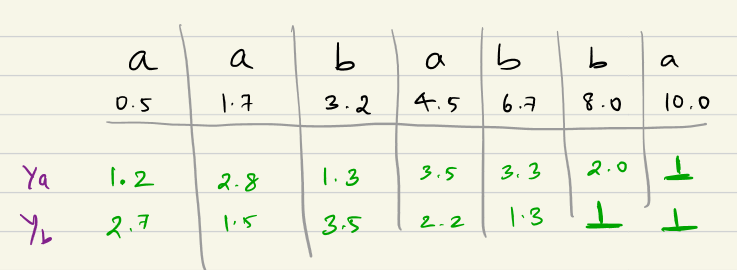 a a b a b b a
0.5 1.7 3.2 4.5 6.7 8.0 10.0
Ya 1.2 2.8 1.3 3.5 3.3 2.0 ⊥
Yb 2.7 1.5 3.5 2.2 1.3 ⊥ ⊥